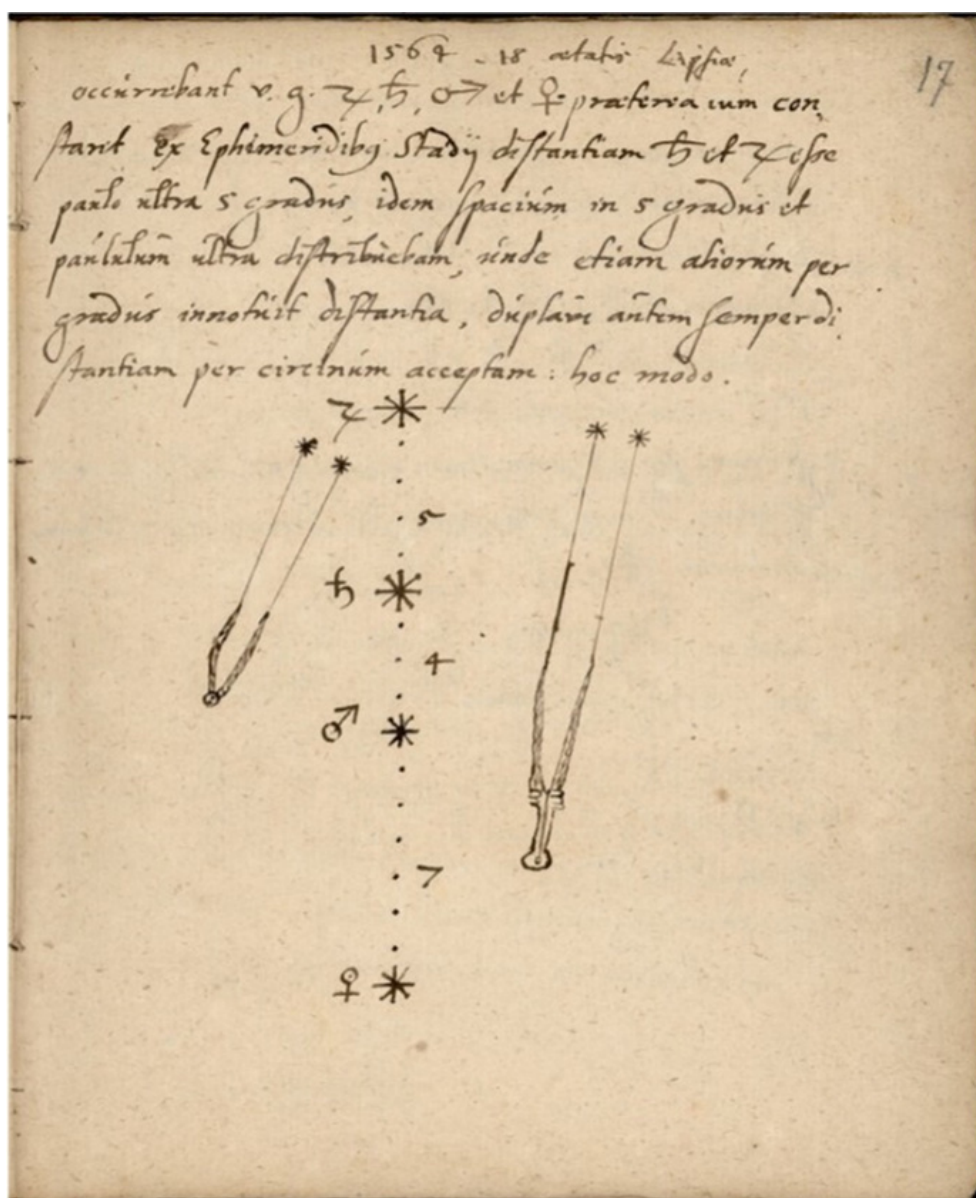 1564 - 18 ætatis Lipsiæ,
17
occurrebant v. g. ♃, ♄, ♂ et ♀ præterea cum con,
staret Ex Ephimeridibꝰ Stadij distantiam ♄ et ♃ esse
paulo ultra 5 gradus, idem spacium in 5 gradus et
paululum ultra distribuebam, unde etiam aliorum per
gradus innotuit distantia, duplavi autem semper di,
stantiam per circinum acceptam: hoc modo.
♃
5
♄
4
♂
7
♀